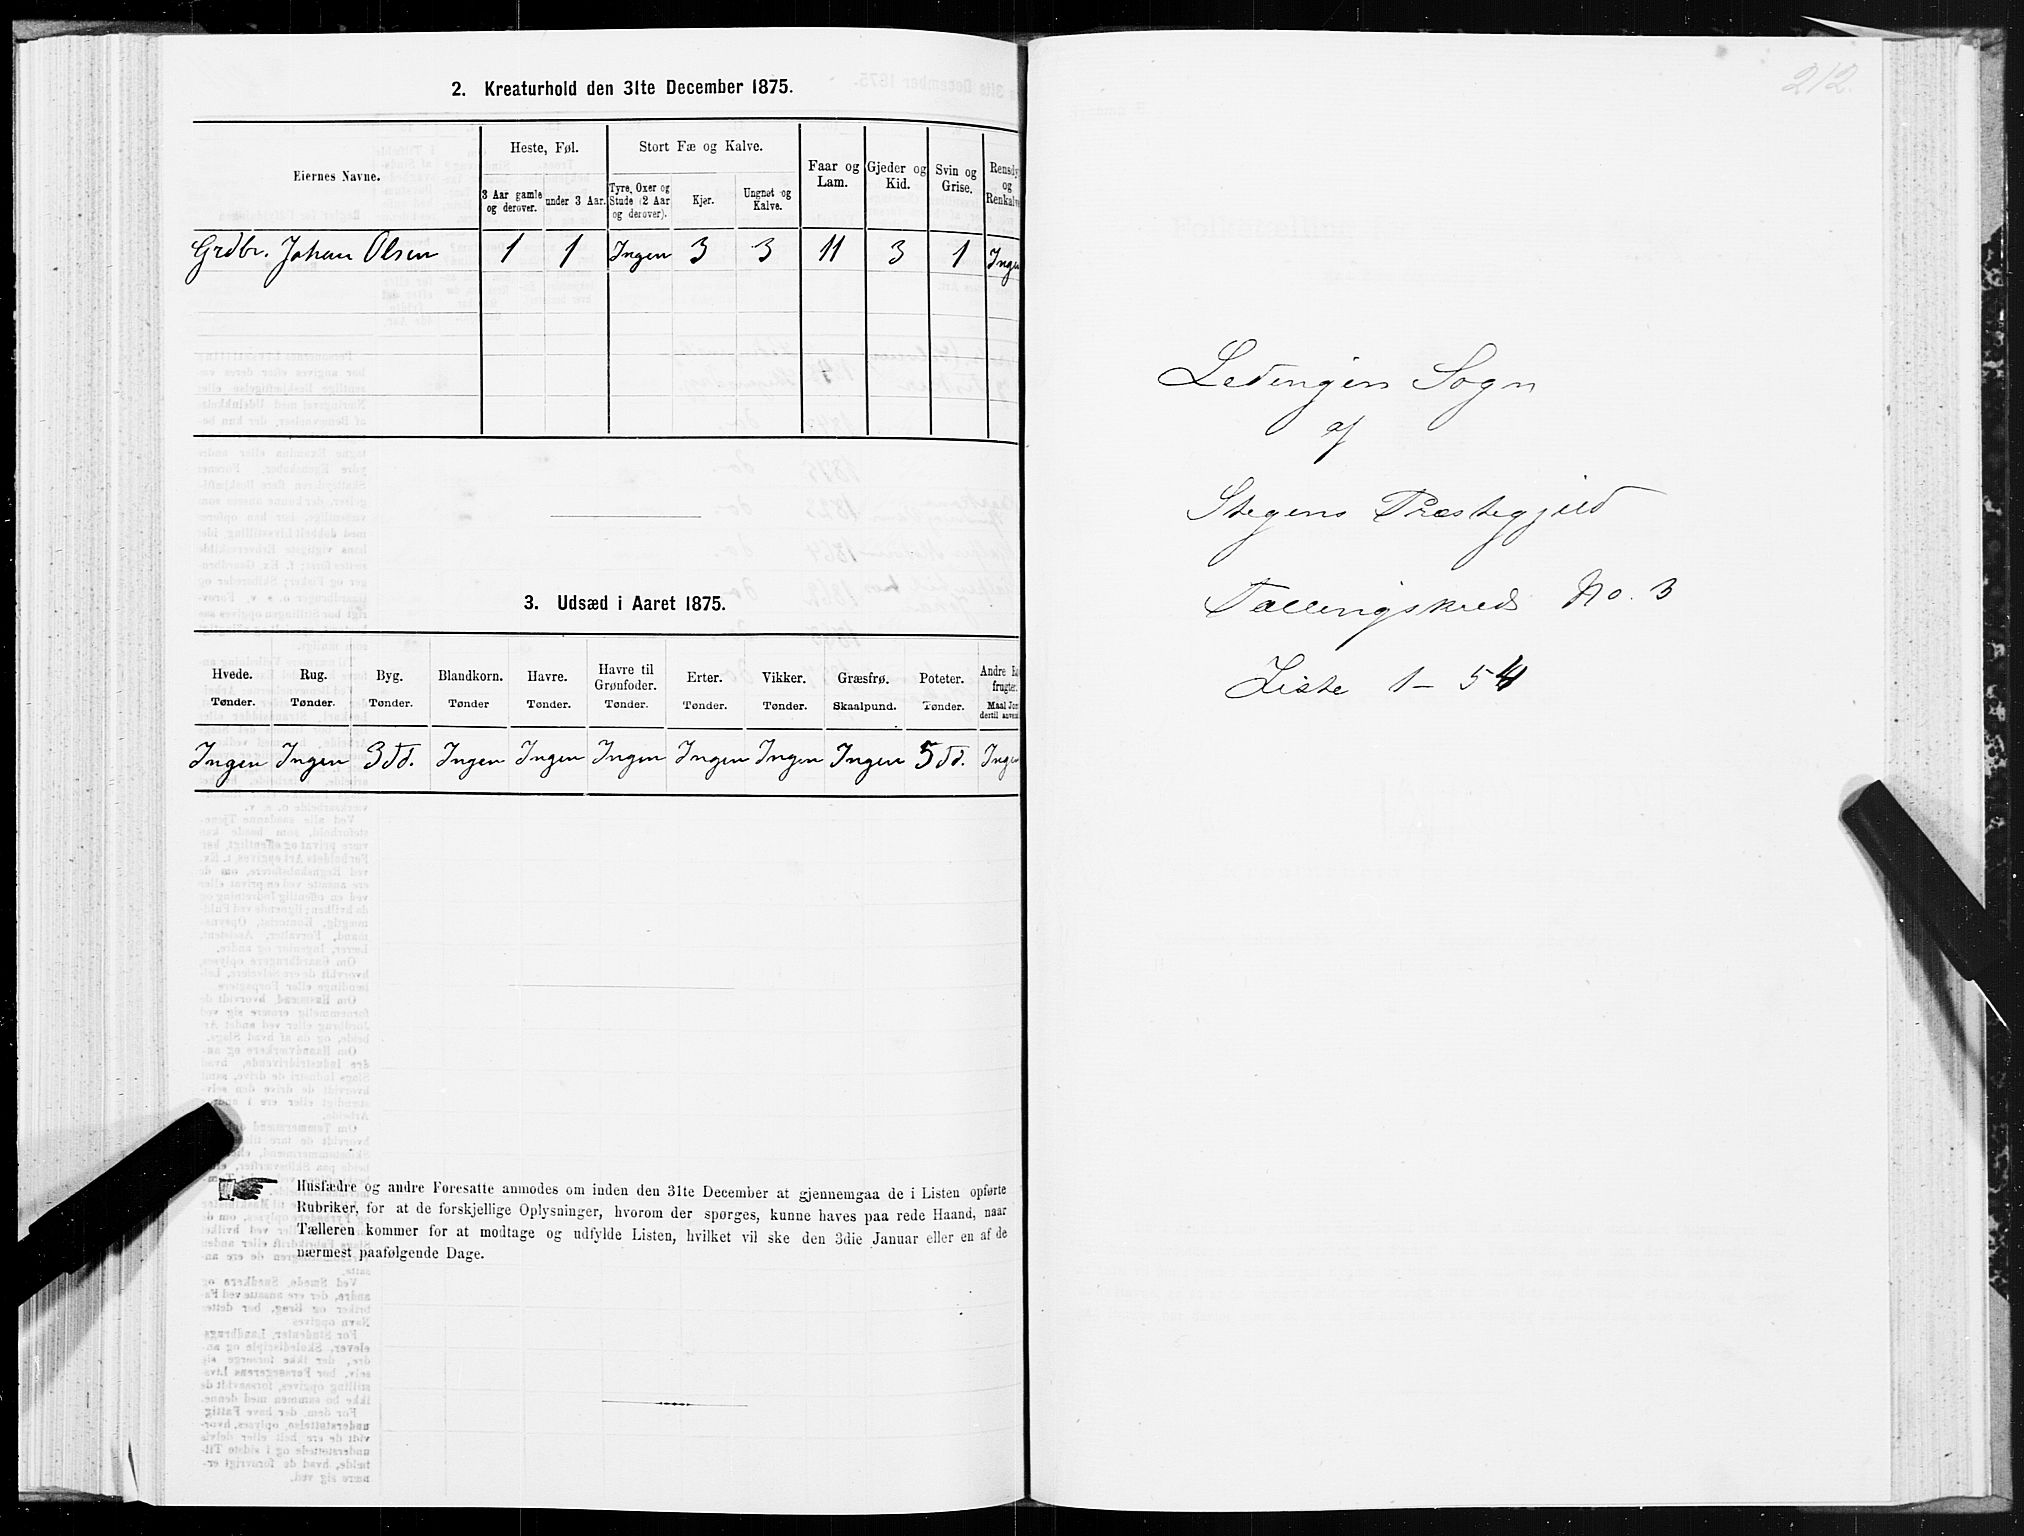 2. Kreaturhold den 31te December 1875.
Eiernes Navne.
Heste, Føl.
3 Aar gamle og derover.
under 3 Aar.
Stort Fæ og Kalve.
Tyre, Oxer og Stude (2 Aar og derover).
Kjør.
Ungnøt og Kalve.
Faar og Lam.
Gjeder og Kid.
Svin og Grise.
Rensdy
og
Renkalve
Grdbr. Johan Olsen 1 1 Ingen 3 3 11 3 1 Ingen
3. Udsæd i Aaret 1875.
Hvede. Rug. Byg. Blandkorn. Havre. Havre til Grønfoder. Erter. Vikker. Græsfrø. Poteter. Andre
frugter.
Tønder. Tønder. Tønder. Tønder Tønder. Tønder. Tønder. Tønder. Skaalpund. Tønder. Maal Jor
dertil anven
Ingen Ingen 3 Td. Ingen Ingen Ingen Ingen Ingen Ingen 5 Td. Ingen
Husfædre og andre Foresatte anmodes om inden den 31te December at gjennemgaa de i Listen opførte
Rubriker, for at de forskjellige Oplysninger, hvorom der spørges, kunne haves paa rede Haand, naar
Tælleren kommer for at modtage og udfylde Listen, hvilket vil ske den 3die Januar eller en af de
nærmest paafølgende Dage.
212.
Ledingen Sogn
af
Stegens Præstegjeld
Tællingskreds No. 3
Liste 1 - 54